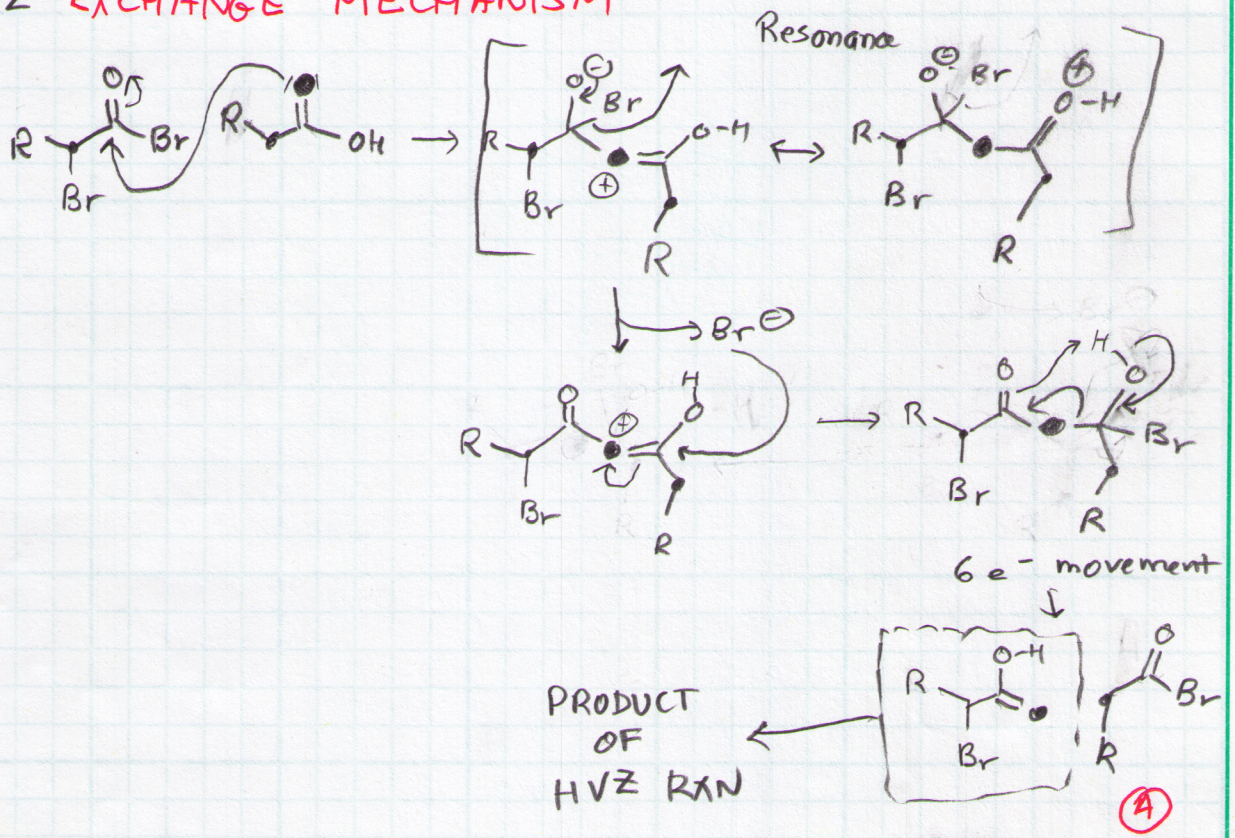 EXCHANGE MECHANISM
Resonance
O
R
Br
Br
R
OH
O ⊖
Br
R
Br
⊕
O-H
R
O ⊖
Br
⊕
O-H
R
Br
R
Br ⊖
O
R
Br
⊕
H
O
R
O
H
O
R
Br
Br
R
6 e⁻ movement
R
O-H
Br
O
Br
R
PRODUCT
OF
HVZ RXN
4